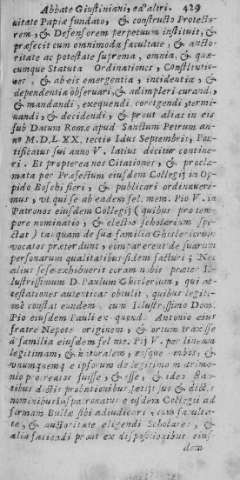 Abbate Giustiniani, ed altri. 429
uitate Papiæ fundato, & constructo Protecto-
rem, & Defensorem perpetuum instituit, &
præfecit cum omnimoda facultate, & aucto-
ritate ac potestate suprema, omnia, & quæ-
cumque Statuta Ordinationes, Constitutio-
nes, & ab eis emergentia, incidentia, &
dependentia obseruari, & adimpleri curand.
& mandandi, exequendi, corrigendi, termi-
nandi, & decidendi, & prout alias in eis
sub Datum Romæ apud Sanctum Petrum an-
no M.D.LXX. tertio Idus Septembris, Pon-
tificatus sui anno V. latius dicitur contine-
ri. Et propterea nos Citationes, & procla-
mata per Præfectum eiusdem Collegij in Op-
pido Boschi fieri, & publicari ordinaueri-
mus, vt qui se ab eadem fel. mem. Pio V. in
Patronos eiusdem Collegij (quibus pro tem-
pore nominatio, & electio scholarium spe-
ctat) tamquam de sua familia Ghisleriorum
vocatos prætendunt, comparerent de suarum
personarum qualitatibus fidem facturi; Nec
alius sese exhibuerit coram nobis præter Il-
lustrissimum D. Paulum Ghislerium, qui at-
testationes autenticas obtulit, quibus legiti-
mè constat eumdem, cum Illustrissimo Dom.
Pio eiusdem Pauli ex quond. Antonio eius
fratre Nepote originem, & ortum traxisse
à familia eiusdem fel. me. Pij V. per lineam
legitimam, & naturalem, eosque ambos, &
vnumquemq; ipsorum de legitimo matrimo-
nio procreatos fuisse, & esse, & ideo
dictis probationibus satis
nominibus Iuspatronatus eiusdem Collegij ad
formam Bullæ sibi adiudicari, cum faculta-
te, & auctoritate eligendi Scholares, &
alia faciendi prout ex dispositionibus eius-
dem